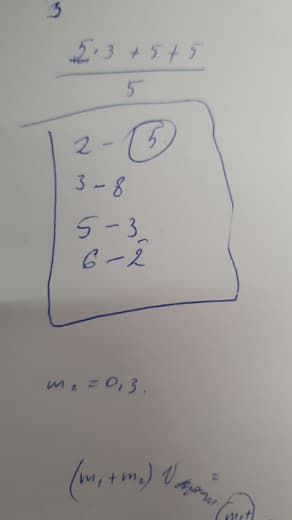 3
5·3+5+5
5
2-5
3-8
5-3
6-2
m₂=0,3.
(m₁+m₂)V =
(m₁+